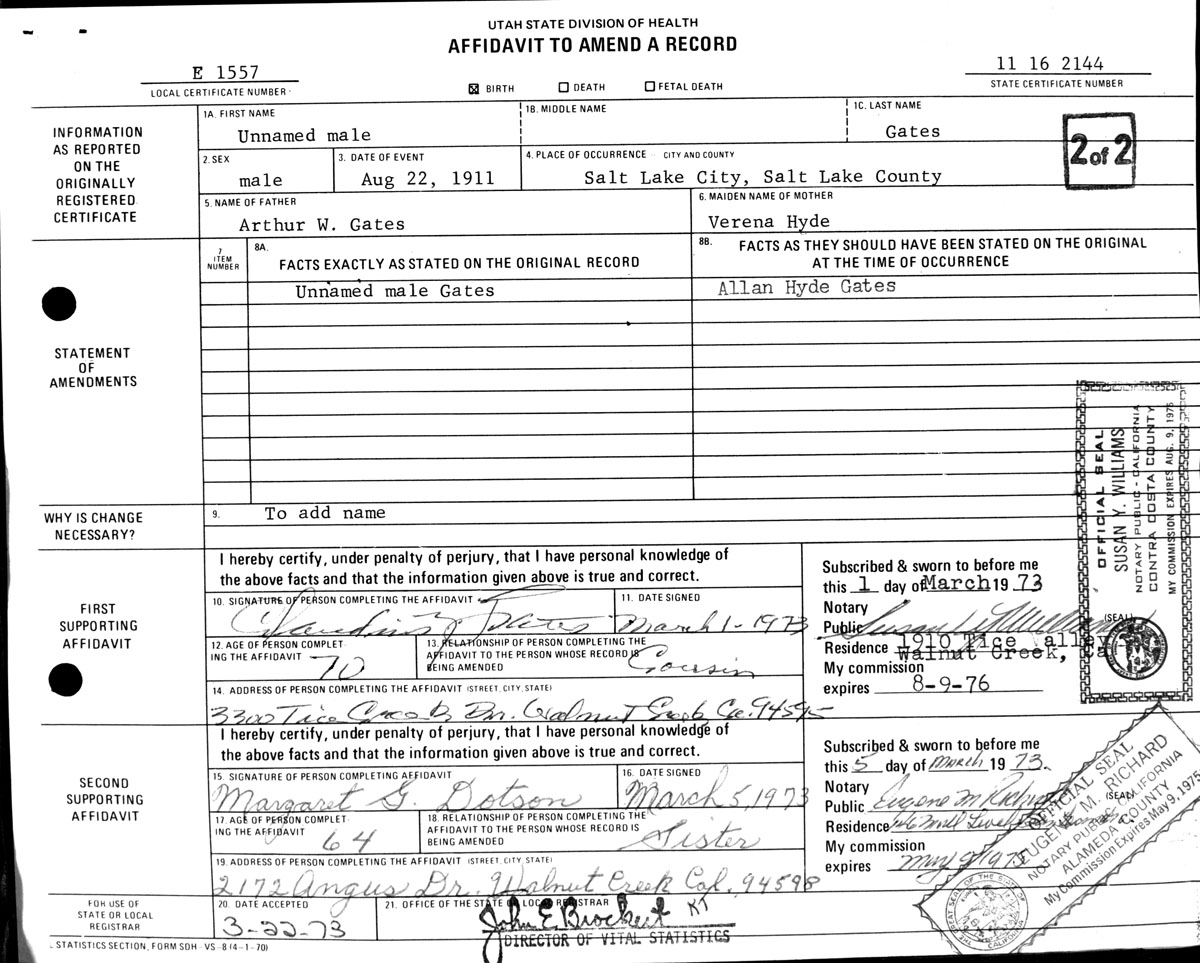 UTAH STATE DIVISION OF HEALTH
AFFIDAVIT TO AMEND A RECORD
E 1557
LOCAL CERTIFICATE NUMBER
☒ BIRTH ☐ DEATH ☐ FETAL DEATH
11 16 2144
STATE CERTIFICATE NUMBER
INFORMATION
AS REPORTED
ON THE
ORIGINALLY
REGISTERED
CERTIFICATE
1A. FIRST NAME
Unnamed male
1B. MIDDLE NAME
1C. LAST NAME
Gates
2 of 2
2. SEX
male
3. DATE OF EVENT
Aug 22, 1911
4. PLACE OF OCCURRENCE CITY AND COUNTY
Salt Lake City, Salt Lake County
5. NAME OF FATHER
Arthur W. Gates
6. MAIDEN NAME OF MOTHER
Verena Hyde
STATEMENT
OF
AMENDMENTS
7
ITEM
NUMBER
8A.
FACTS EXACTLY AS STATED ON THE ORIGINAL RECORD
8B. FACTS AS THEY SHOULD HAVE BEEN STATED ON THE ORIGINAL
AT THE TIME OF OCCURRENCE
Unnamed male Gates
Allan Hyde Gates
WHY IS CHANGE
NECESSARY?
9. To add name
FIRST
SUPPORTING
AFFIDAVIT
I hereby certify, under penalty of perjury, that I have personal knowledge of
the above facts and that the information given above is true and correct.
10. SIGNATURE OF PERSON COMPLETING THE AFFIDAVIT
11. DATE SIGNED
March 1-1973
12. AGE OF PERSON COMPLET
ING THE AFFIDAVIT 70
13. RELATIONSHIP OF PERSON COMPLETING THE
AFFIDAVIT TO THE PERSON WHOSE RECORD IS
BEING AMENDED Cousin
14. ADDRESS OF PERSON COMPLETING THE AFFIDAVIT (STREET, CITY, STATE)
3300 Tice Creek Dr. Walnut Creek Ca. 94595
Subscribed & sworn to before me
this 1 day of March 19 73
Notary
Public Susan Y. Williams (SEAL)
Residence 1910 Tice Valley
Walnut Creek, Ca
My commission
expires 8-9-76
OFFICIAL SEAL
SUSAN Y. WILLIAMS
NOTARY PUBLIC - CALIFORNIA
CONTRA COSTA COUNTY
MY COMMISSION EXPIRES AUG. 9, 1976
SECOND
SUPPORTING
AFFIDAVIT
I hereby certify, under penalty of perjury, that I have personal knowledge of
the above facts and that the information given above is true and correct.
15. SIGNATURE OF PERSON COMPLETING AFFIDAVIT
Margaret G. Dotson
16. DATE SIGNED
March 5, 1973
17. AGE OF PERSON COMPLET
ING THE AFFIDAVIT 64
18. RELATIONSHIP OF PERSON COMPLETING THE
AFFIDAVIT TO THE PERSON WHOSE RECORD IS
BEING AMENDED Sister
19. ADDRESS OF PERSON COMPLETING THE AFFIDAVIT (STREET, CITY, STATE)
2172 Angus Dr. Walnut Creek Cal. 94598
Subscribed & sworn to before me
this 5 day of March 19 73.
Notary
Public Eugene M Richard (SEAL)
Residence
My commission
expires May 9, 1975
OFFICIAL SEAL
EUGENE M. RICHARD
NOTARY PUBLIC CALIFORNIA
ALAMEDA COUNTY
My Commission Expires May 9, 1975
FOR USE OF
STATE OR LOCAL
REGISTRAR
20. DATE ACCEPTED
3-22-73
21. OFFICE OF THE STATE OR LOCAL REGISTRAR
John E. Brockert KT
DIRECTOR OF VITAL STATISTICS
STATISTICS SECTION, FORM SDH-VS-8 (4-1-70)